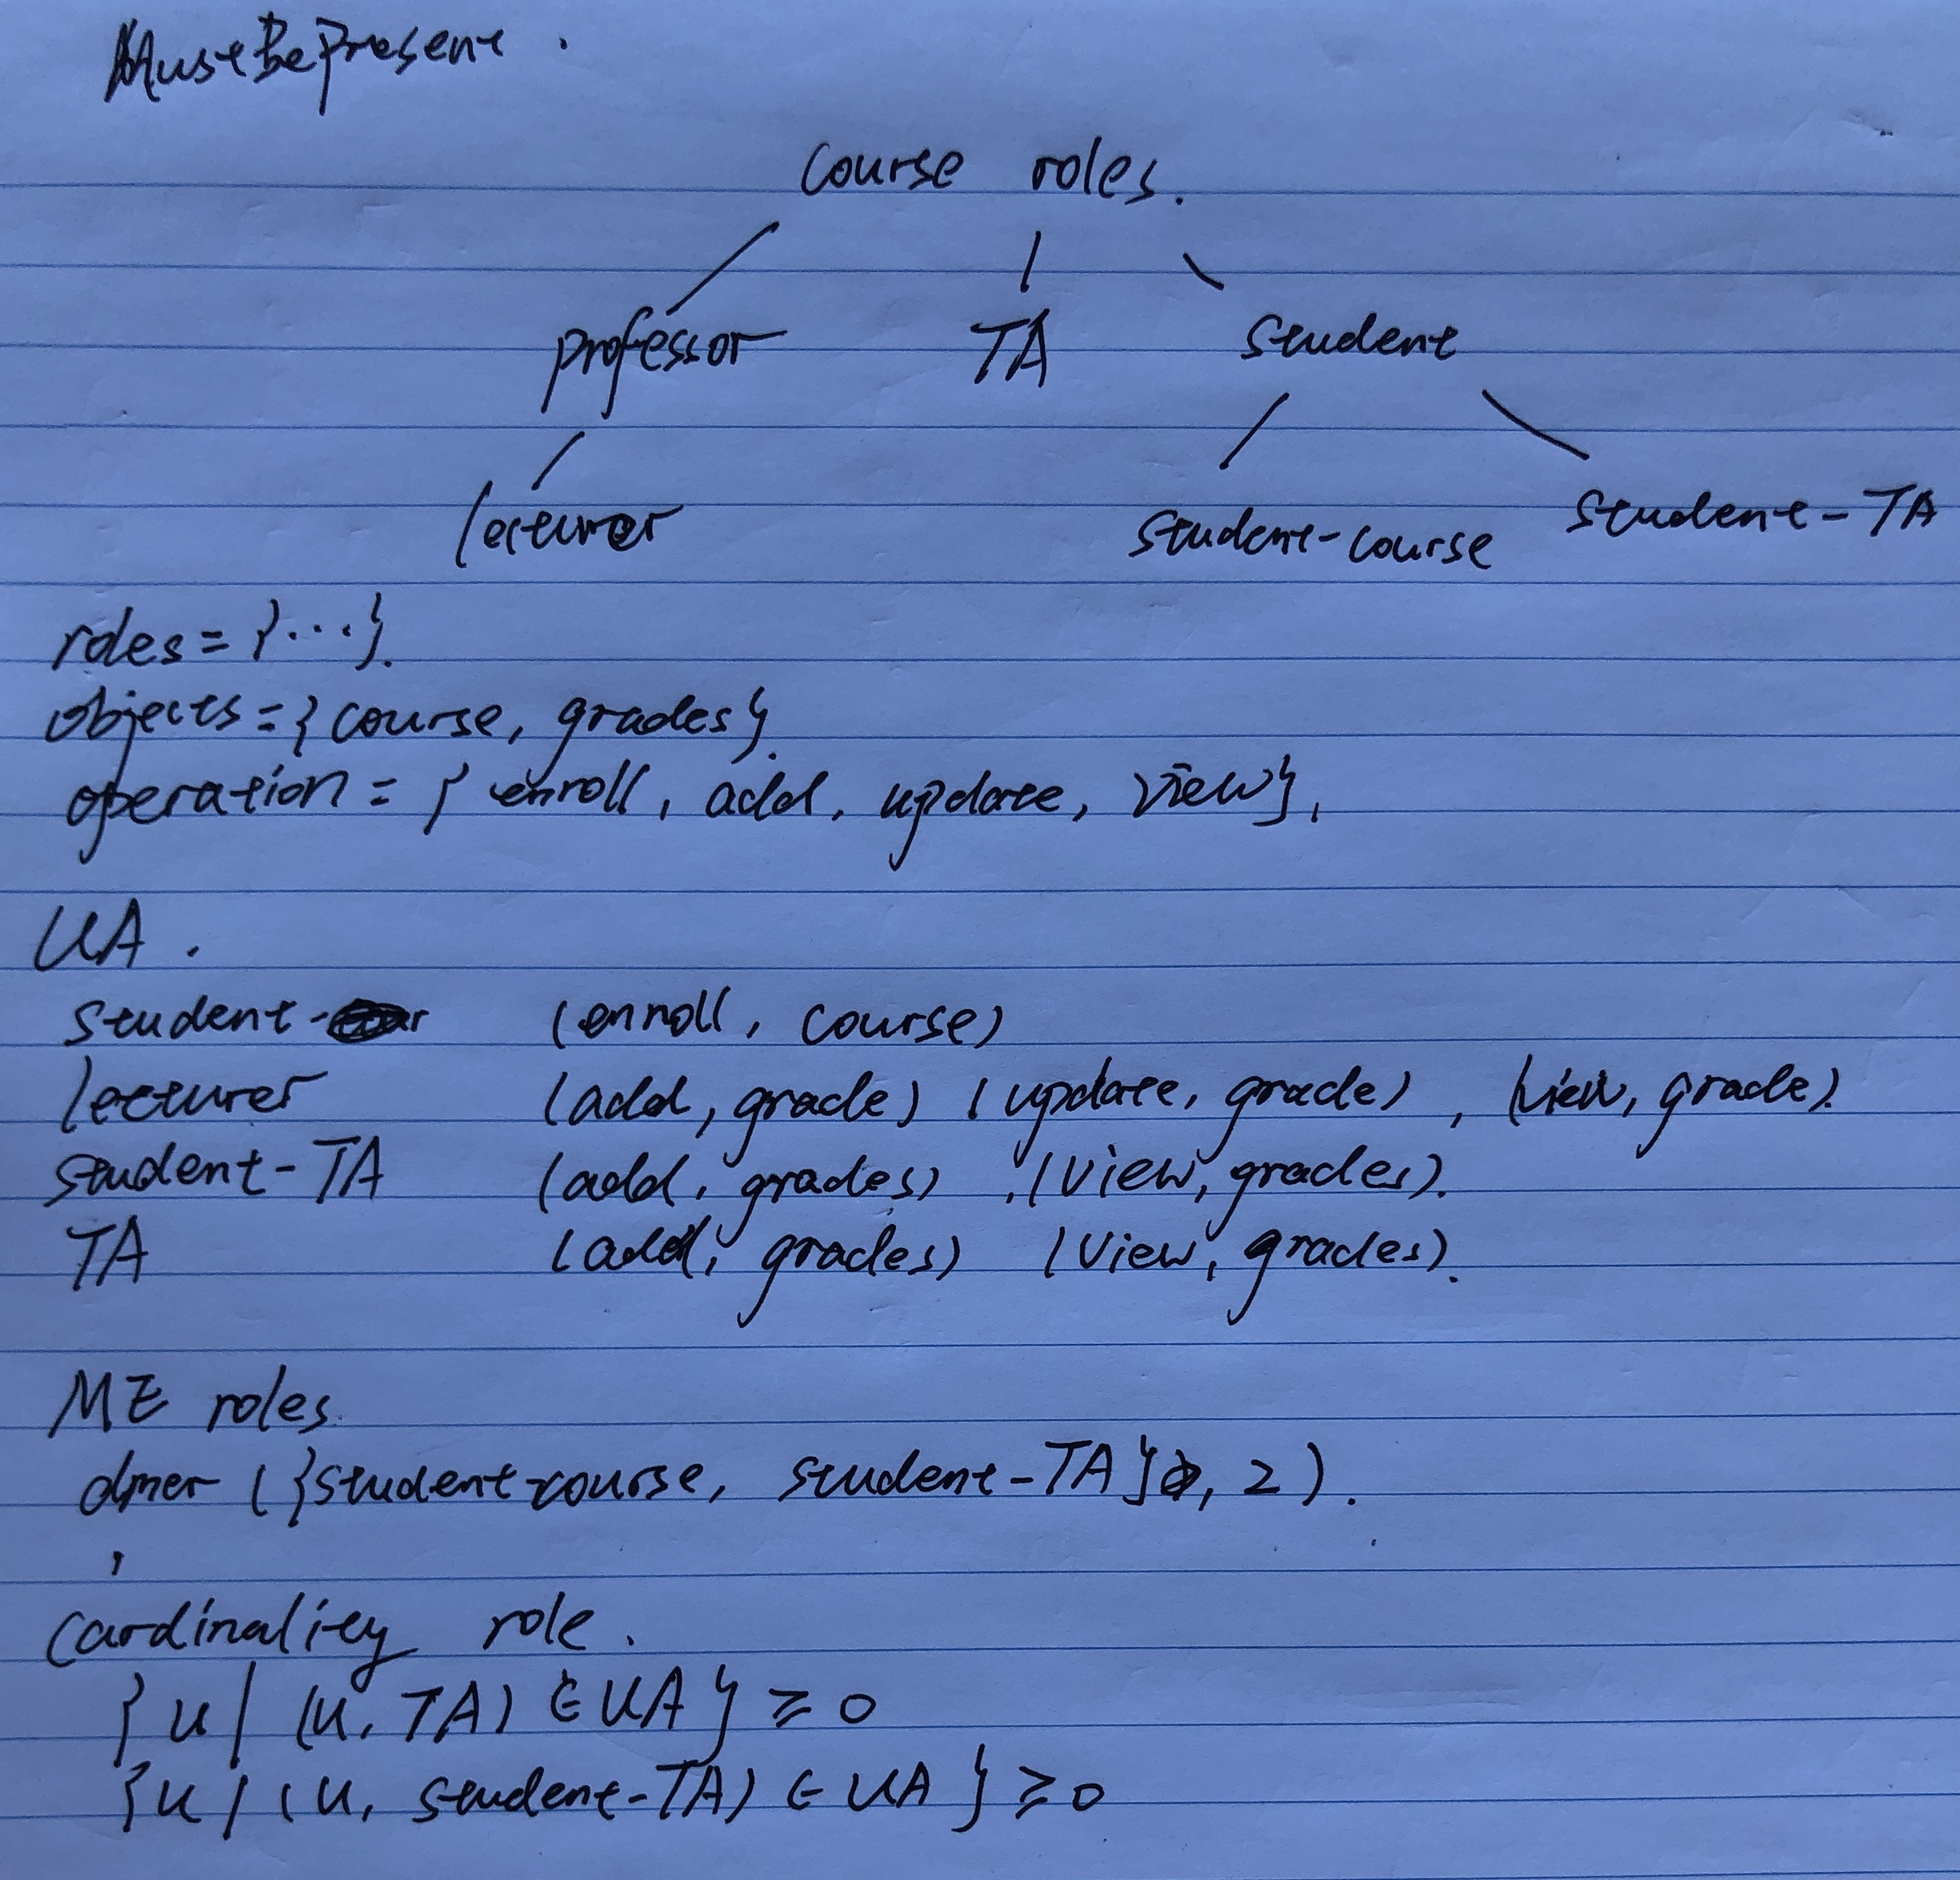 MustBePresent.
course roles.
professor TA student
lecturer student-course student-TA
roles = {...}.
objects = { course, grades }.
operation = { enroll, add, update, view },
UA.
student- (enroll, course)
lecturer (add, grade) (update, grade), (view, grade).
student-TA (add, grades), (view, grades).
TA (add, grades) (view, grades).
ME roles.
dmer ({student-course, student-TA}, 2).
cardinality role.
{ u | (u, TA) ∈ UA } ≥ 0
{ u | (u, student-TA) ∈ UA } ≥ 0